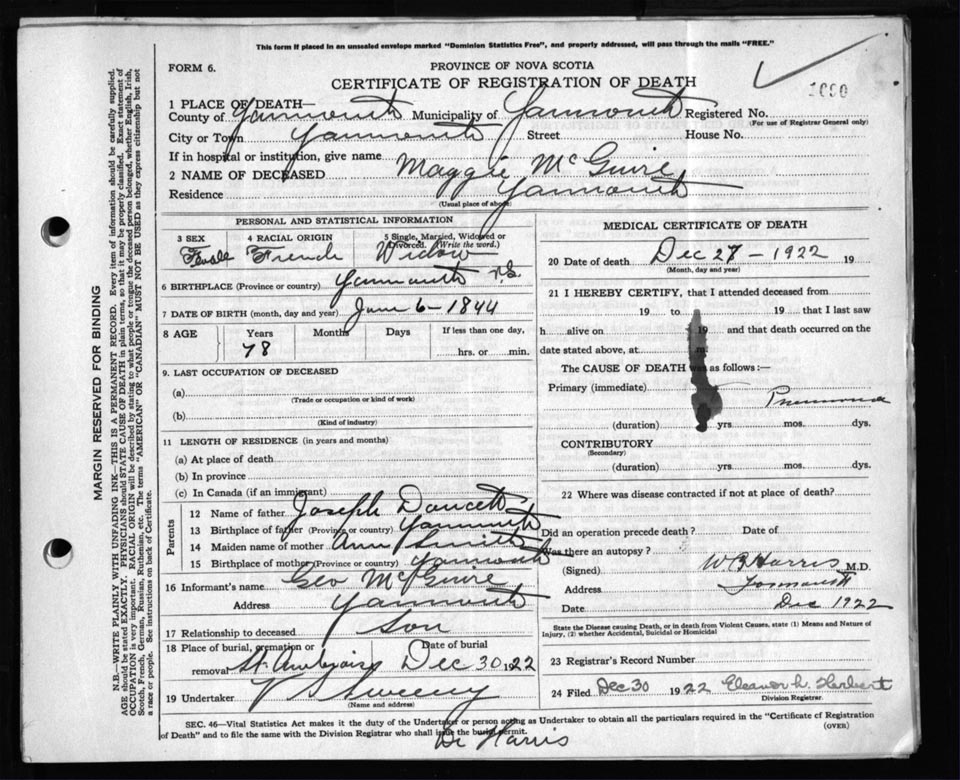 This form if placed in an unsealed envelope marked "Dominion Statistics Free", and properly addressed, will pass through the mails "FREE."
FORM 6.
PROVINCE OF NOVA SCOTIA
CERTIFICATE OF REGISTRATION OF DEATH
1 PLACE OF DEATH—
County of Yarmouth Municipality of Yarmouth Registered No.
(For use of Registrar General only)
City or Town Yarmouth Street House No.
If in hospital or institution, give name
2 NAME OF DECEASED Maggie McGuire
Residence Yarmouth
(Usual place of abode)
PERSONAL AND STATISTICAL INFORMATION
3 SEX 4 RACIAL ORIGIN 5 Single, Married, Widowed or Divorced. (Write the word.)
Female French Widow
6 BIRTHPLACE (Province or country) Yarmouth N.S.
7 DATE OF BIRTH (month, day and year) June 6 - 1844
8 AGE Years Months Days If less than one day,
78 hrs. or min.
9. LAST OCCUPATION OF DECEASED
(a)
(Trade or occupation or kind of work)
(b)
(Kind of industry)
11 LENGTH OF RESIDENCE (in years and months)
(a) At place of death
(b) In province
(c) In Canada (if an immigrant)
Parents
12 Name of father Joseph Doucett
13 Birthplace of father (Province or country) Yarmouth
14 Maiden name of mother Ann Smith
15 Birthplace of mother (Province or country) Yarmouth
16 Informant's name Geo McGuire
Address Yarmouth
17 Relationship to deceased Son
18 Place of burial, cremation or removal St. Ambrose Date of burial Dec 30 1922
19 Undertaker V S Sweeny
(Name and address)
MEDICAL CERTIFICATE OF DEATH
20 Date of death Dec 27 - 1922 19
(Month, day and year)
21 I HEREBY CERTIFY, that I attended deceased from
19 to 19 that I last saw
h alive on 19 and that death occurred on
date stated above, at m
The CAUSE OF DEATH was as follows:—
Primary (immediate)
Pneumonia
(duration) yrs. mos. dys.
CONTRIBUTORY
(Secondary)
(duration) yrs. mos. dys.
22 Where was disease contracted if not at place of death?
Did an operation precede death? Date of
Was there an autopsy?
(Signed) W B Harris M.D.
Address Yarmouth
Date Dec 1922
State the Disease causing Death, or in death from Violent Causes, state (1) Means and Nature of
Injury, (2) whether Accidental, Suicidal or Homicidal
23 Registrar's Record Number
24 Filed Dec 30 1922 Eleanor L. Herbert
Division Registrar.
SEC. 46—Vital Statistics Act makes it the duty of the Undertaker or person acting as Undertaker to obtain all the particulars required in the "Certificate of Registration
of Death" and to file the same with the Division Registrar who shall issue the burial permit. (OVER)
Dr Harris
MARGIN RESERVED FOR BINDING
N.B.—WRITE PLAINLY WITH UNFADING INK—THIS IS A PERMANENT RECORD. Every item of information should be carefully supplied.
AGE should be stated EXACTLY. PHYSICIANS should STATE CAUSE OF DEATH in plain terms, so that it may be properly classified. Exact statement of
OCCUPATION is very important. RACIAL ORIGIN will be described by stating to what people or tongue the deceased person belonged, whether English, Irish,
Scotch, French, German, Russian, Ruthenian, etc. The terms "AMERICAN" OR "CANADIAN" MUST NOT BE USED as they express citizenship but not
a race or people. See instructions on back of Certificate.